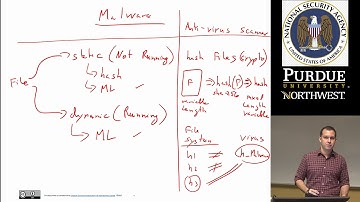 Malware
Anti-virus scanner
File
static (Not Running)
hash
ML
dynamic (Running)
ML
hash Files (Crypto)
F
sha256(F)
hash
variable
length
fixed
length
variable
File
system
virus
h1
h2
h3
NATIONAL SECURITY AGENCY
UNITED STATES OF AMERICA
PURDUE
UNIVERSITY
NORTHWEST